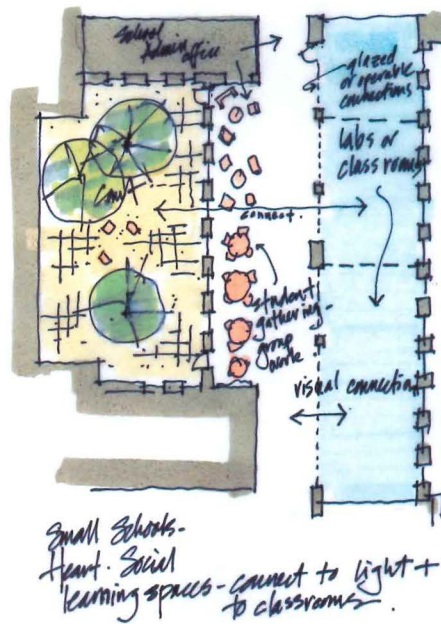 School
Admin
office
glazed
or operable
connections
labs or
classrooms
Court
connect
student
gathering-
group
work
visual connection
Small Schools-
Heart. Social
learning spaces - connect to light +
to classrooms.